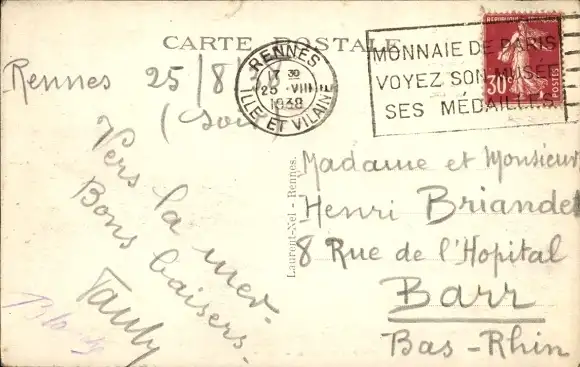 CARTE POSTALE
Rennes 25/8
(soir)
RENNES
17 30
25 - VIII
1938
ILLE ET VILAINE
MONNAIE DE PARIS
VOYEZ SON MUSEE
SES MÉDAILLES
REPUBLIQUE FRANÇAISE
30
POSTES
Vers la mer.
Bons baisers.
Laurent-Nel - Rennes.
Madame et Monsieur
Henri Briandet
8 Rue de l'Hopital
Barr
Bas-Rhin